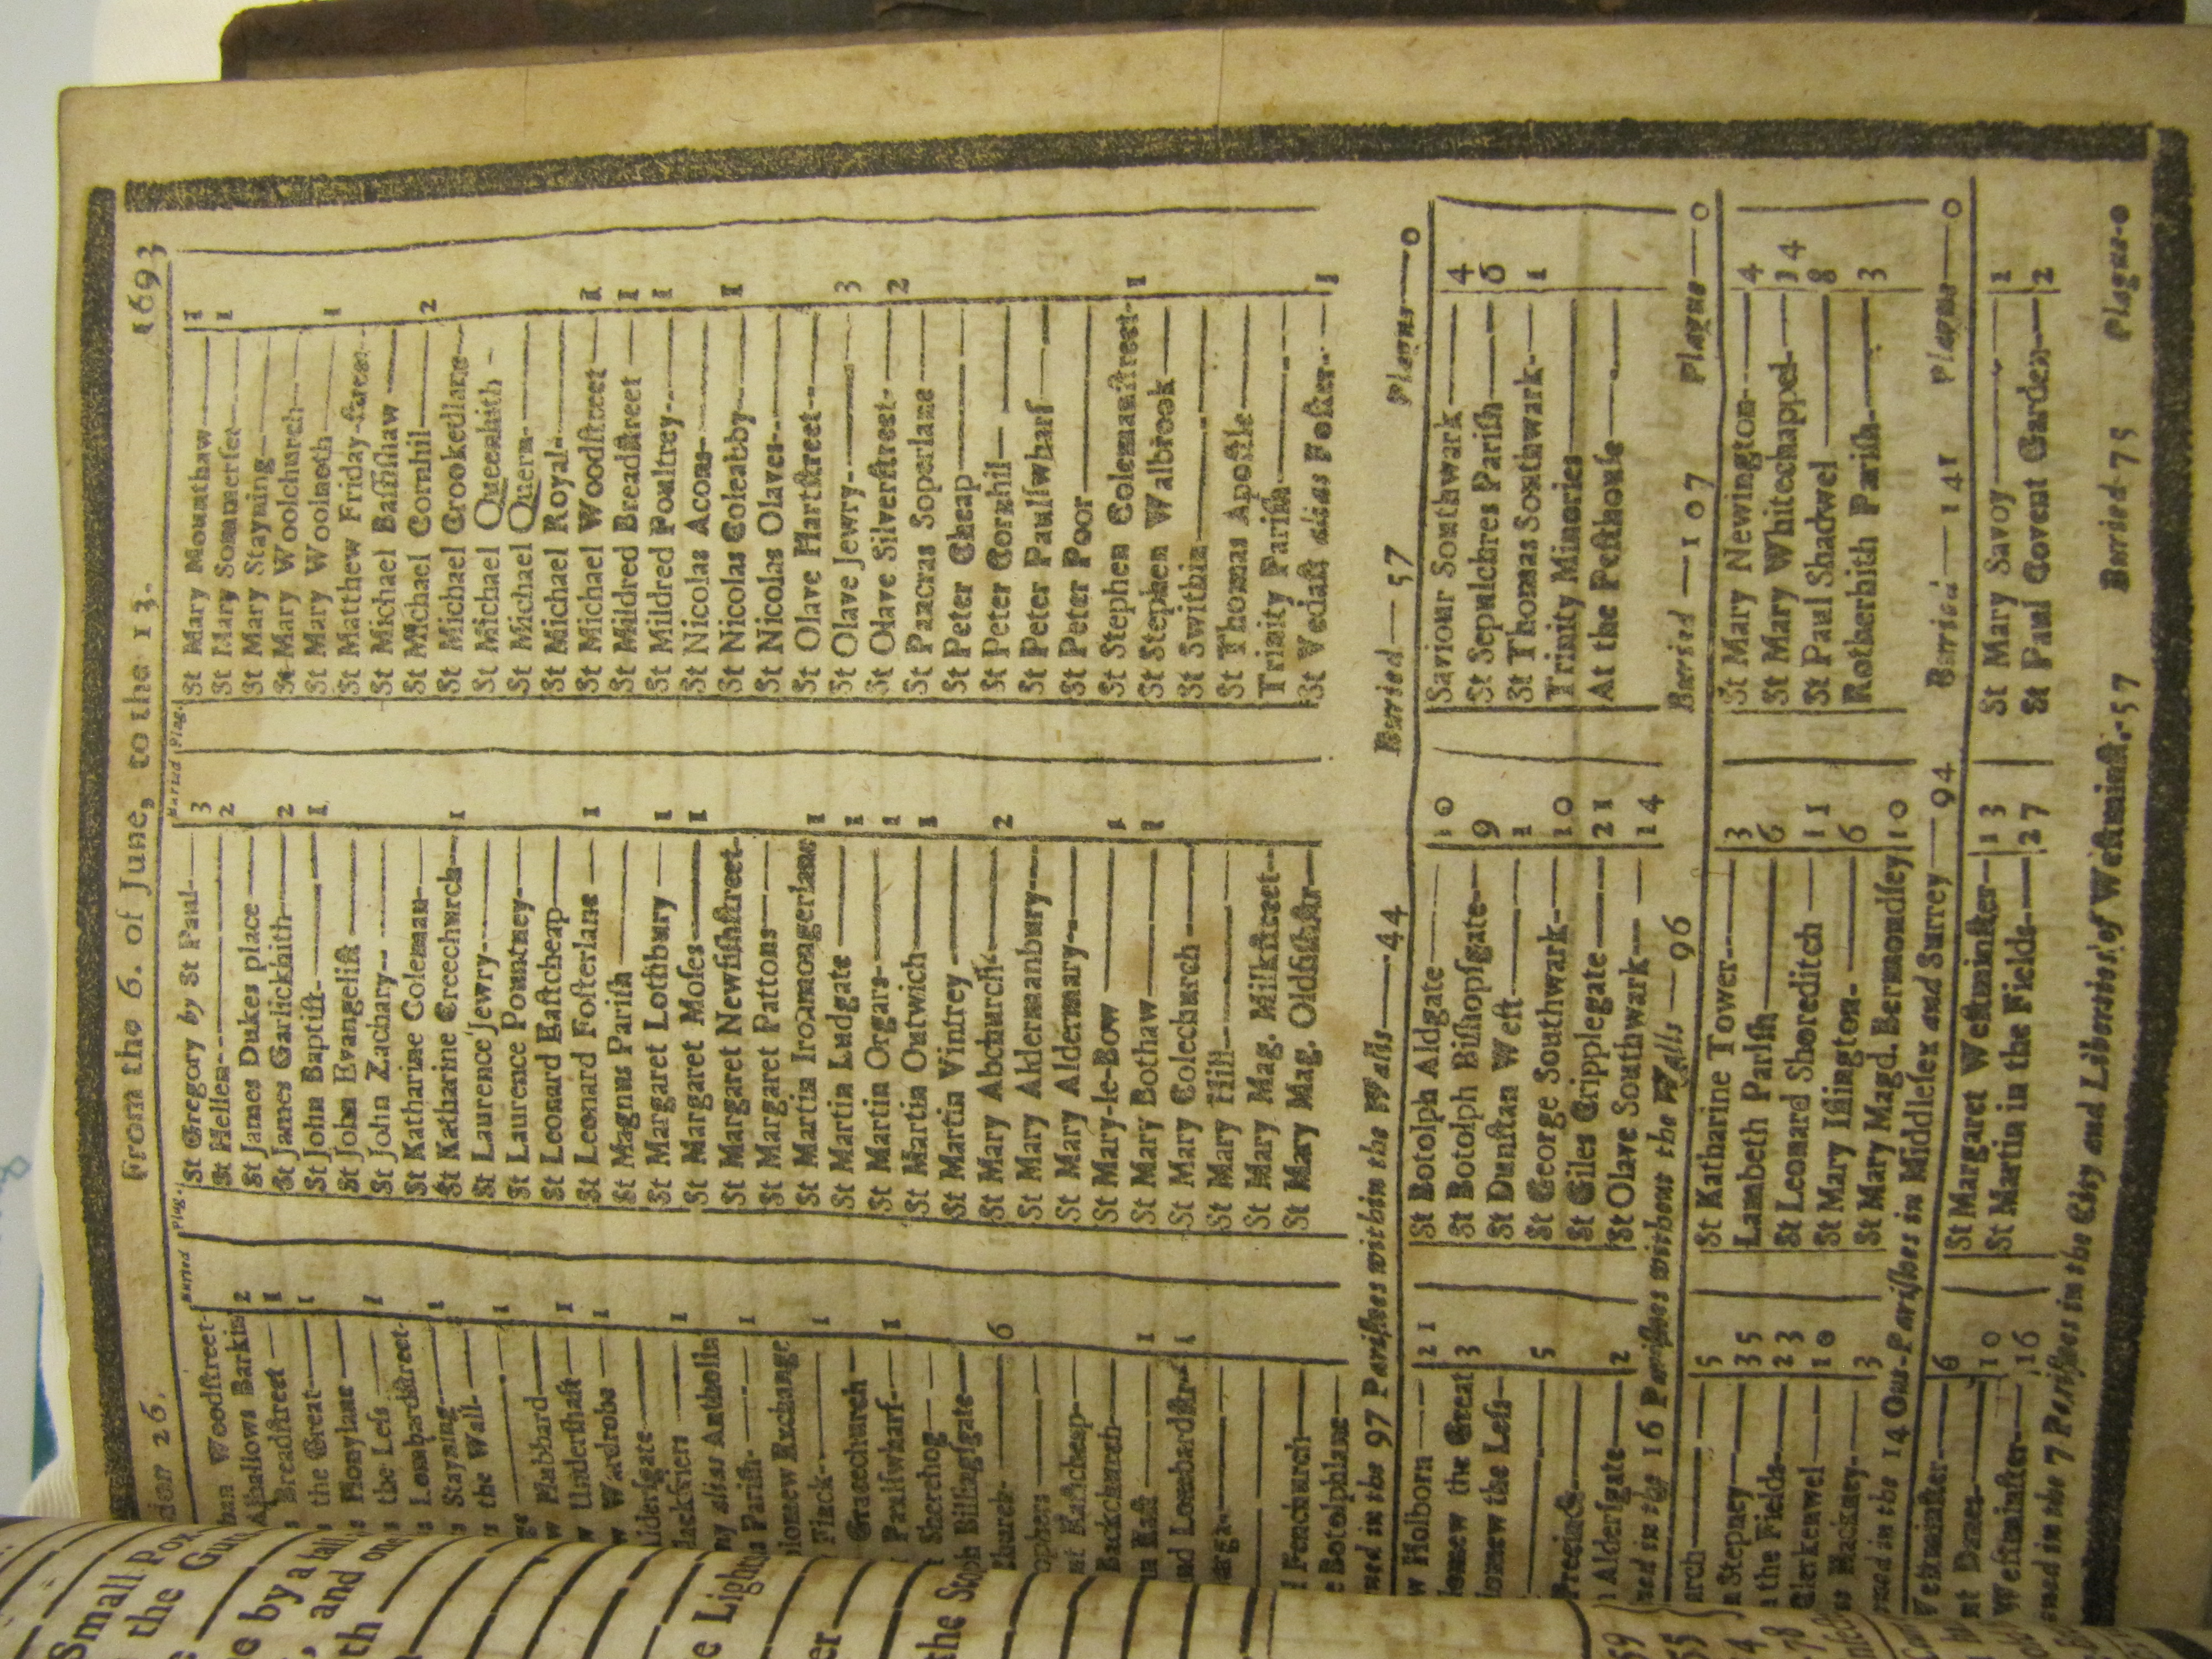 don 26. From the 6. of June, to the 13. 1693
Buried Plag. Buried Plag.
ban Woodſtreet- 2
Alhallows Barkin 1
Breadſtreet — 1
the Great—
Honylane —
the Leſs — 1
Lombardſtreet-
Stayning— 1
the Wall-
1
Hubbard—
Underſhaft— 1
Wardrobe — 1
Alderſgate—
lackfriers — 1
alias Antholin
Pariſh- 1
olomew Exchange
Finck— 1
Gracechurch—
Paulſwharf— 1
Sherehog —
Billingſgate—
Church- 6
ophers —
Eaſtcheap—
Backchurch—
Eaſt — 1
nd Lombardſtr- 1
Fenchurch—
e Botolphlane—
St Gregory by St Paul— 3
St Hellen— 2
St James Dukes place —
St James Garlickhith— 2
St John Baptiſt— 1
St John Evangeliſt —
St John Zachary—
St Katharine Coleman—
St Katharine Creechurch— 1
St Laurence Jewry—
St Laurence Pountney—
St Leonard Eaſtcheap—
St Leonard Foſterlane — 1
St Magnus Pariſh —
St Margaret Lothbury — 1
St Margaret Moſes — 1
St Margaret Newfiſhſtreet-
St Margaret Pattons—
St Martin Ironmongerlane 1
St Martin Ludgate — 1
St Martin Orgars— 1
St Martin Outwich — 1
St Martin Vintrey —
St Mary Abchurch— 2
St Mary Aldermanbury—
St Mary Aldermary—
St Mary-le-Bow — 1
St Mary Bothaw— 1
St Mary Colechurch —
St Mary Hill—
St Mary Mag. Milkſtreet—
St Mary Mag. Oldfiſhſtr—
St Mary Mounthaw— 1
St Mary Sommerſet— 1
St Mary Stayning—
St Mary Woolchurch—
St Mary Woolnoth— 1
St Matthew Friday-ſtreet-
St Michael Baſſiſhaw —
St Michael Cornhil— 2
St Michael Crookedlane—
St Michael Queenhith -
St Michael Quern-
St Michael Royal-
St Michael Woodſtreet — 1
St Mildred Breadſtreet — 1
St Mildred Poultrey— 1
St Nicolas Acons—
St Nicolas Coleabby— 1
St Nicolas Olaves-
St Olave Hartſtreet—
St Olave Jewry— 3
St Olave Silverſtreet- 2
St Pancras Soperlane —
St Peter Cheap —
St Peter Cornhil—
St Peter Paulſwharf —
St Peter Poor—
St Stephen Colemanſtreet- 1
St Stephen Walbrook —
St Swithin—
St Thomas Apoſtle —
Trinity Pariſh—
St Vedaſt alias Foſter- 1
ned in the 97 Pariſhes within the Walls—44 Buried—57 Plague—0
w Holborn — 21
lomew the Great 3
lomew the Leſs-
Precinct— 5
Alderſgate— 2
St Botolph Aldgate— 10
St Botolph Biſhopſgate— 9
St Dunſtan Weſt— 1
St George Southwark— 10
St Giles Cripplegate— 21
St Olave Southwark— 14
Saviour Southwark— 4
St Sepulchres Pariſh— 6
St Thomas Southwark- 1
Trinity Minories—
At the Peſthouſe —
ned in the 16 Pariſhes without the Walls—96 Buried—107 Plague—0
arch— 5
Stepney— 35
the Fields— 23
Clerkenwel— 10
Hackney— 3
St Katharine Tower— 3
Lambeth Pariſh— 6
St Leonard Shoreditch — 11
St Mary Iſlington- 6
St Mary Magd. Bermondſey 10
St Mary Newington— 4
St Mary Whitechappel— 14
St Paul Shadwel— 8
Rotherhith Pariſh— 3
ned in the 14 Out-Pariſhes in Middleſex and Surrey—94 Buried—141 Plague—0
Weſtminſter— 6
nt Danes— 10
Weſtminſter— 16
St Margaret Weſtminſter— 13
St Martin in the Fields— 27
St Mary Savoy— 1
St Paul Covent Garden— 2
ned in the 7 Pariſhes in the City and Liberties of Weſtminſt.-57 Buried-75 Plague-0
Small Pox
the Gu
e by a fall
, and one
th
e Light
er
the Sto
59
55
4
78